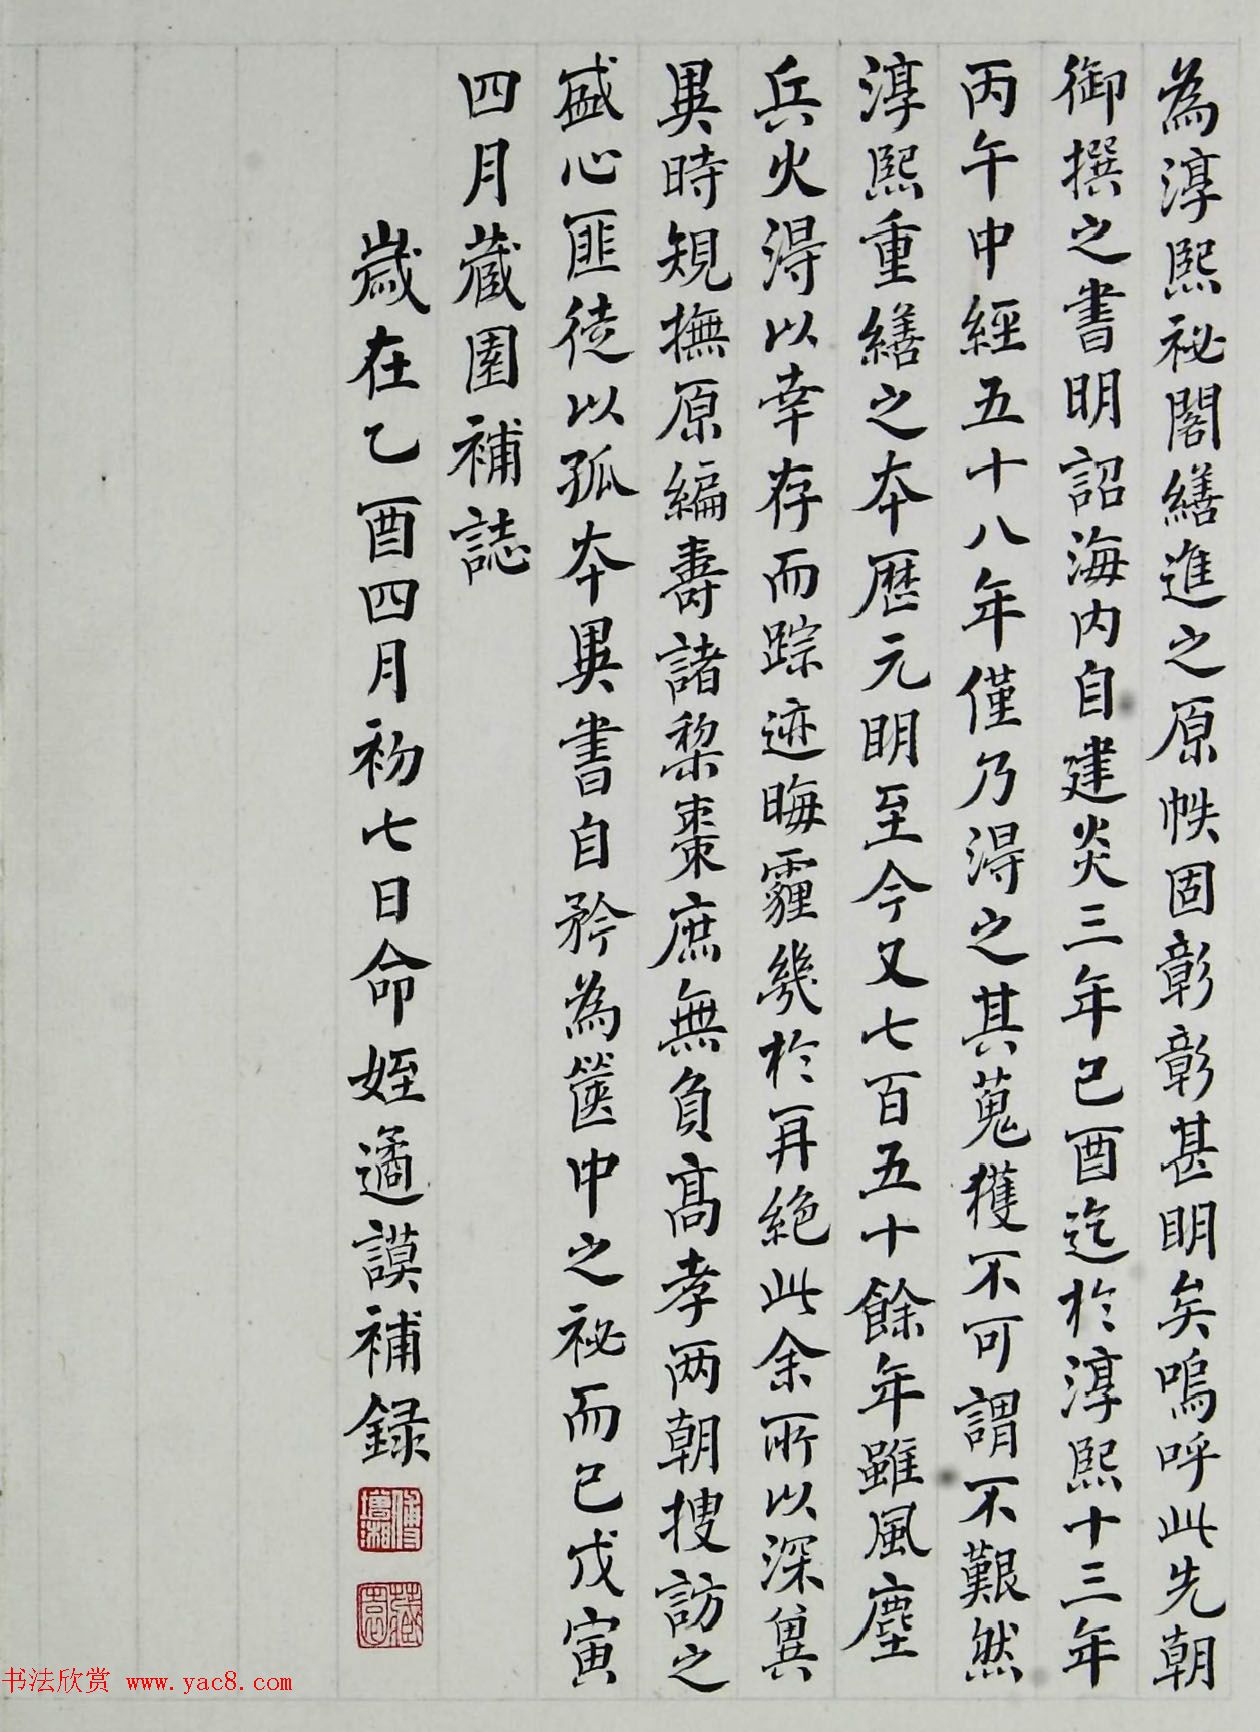 為淳熙祕閣繕進之原帙固彰彰甚明矣嗚呼此先朝
御撰之書明詔海内自建炎三年己酉迄於淳熙十三年
丙午中經五十八年僅乃得之其蒐獲不可謂不艱然
淳熙重繕之本歷元明至今又七百五十餘年雖風塵
兵火得以幸存而踪迹晦霾幾於再絶此余所以深冀
異時規撫原編壽諸棃棗庶無負高孝兩朝搜訪之
盛心匪徒以孤本異書自矜為篋中之祕而已戊寅
四月藏園補誌
歲在乙酉四月初七日命姪遹謨補録
傅增湘
藏園
书法欣赏 www.yac8.com